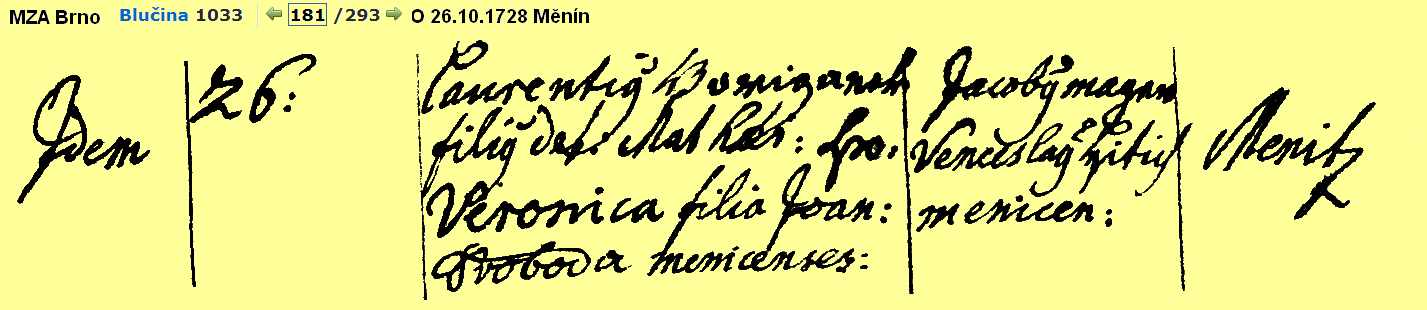 MZA Brno Blučina 1033 181 /293 O 26.10.1728 Měnín
Idem
26:
Laurentiğ
filiğ def: Mathaei: Spo.
Veronica filia Joan:
Svoboda menicenses:
Jacobğ
Venceslağ
menicen:
Menitz